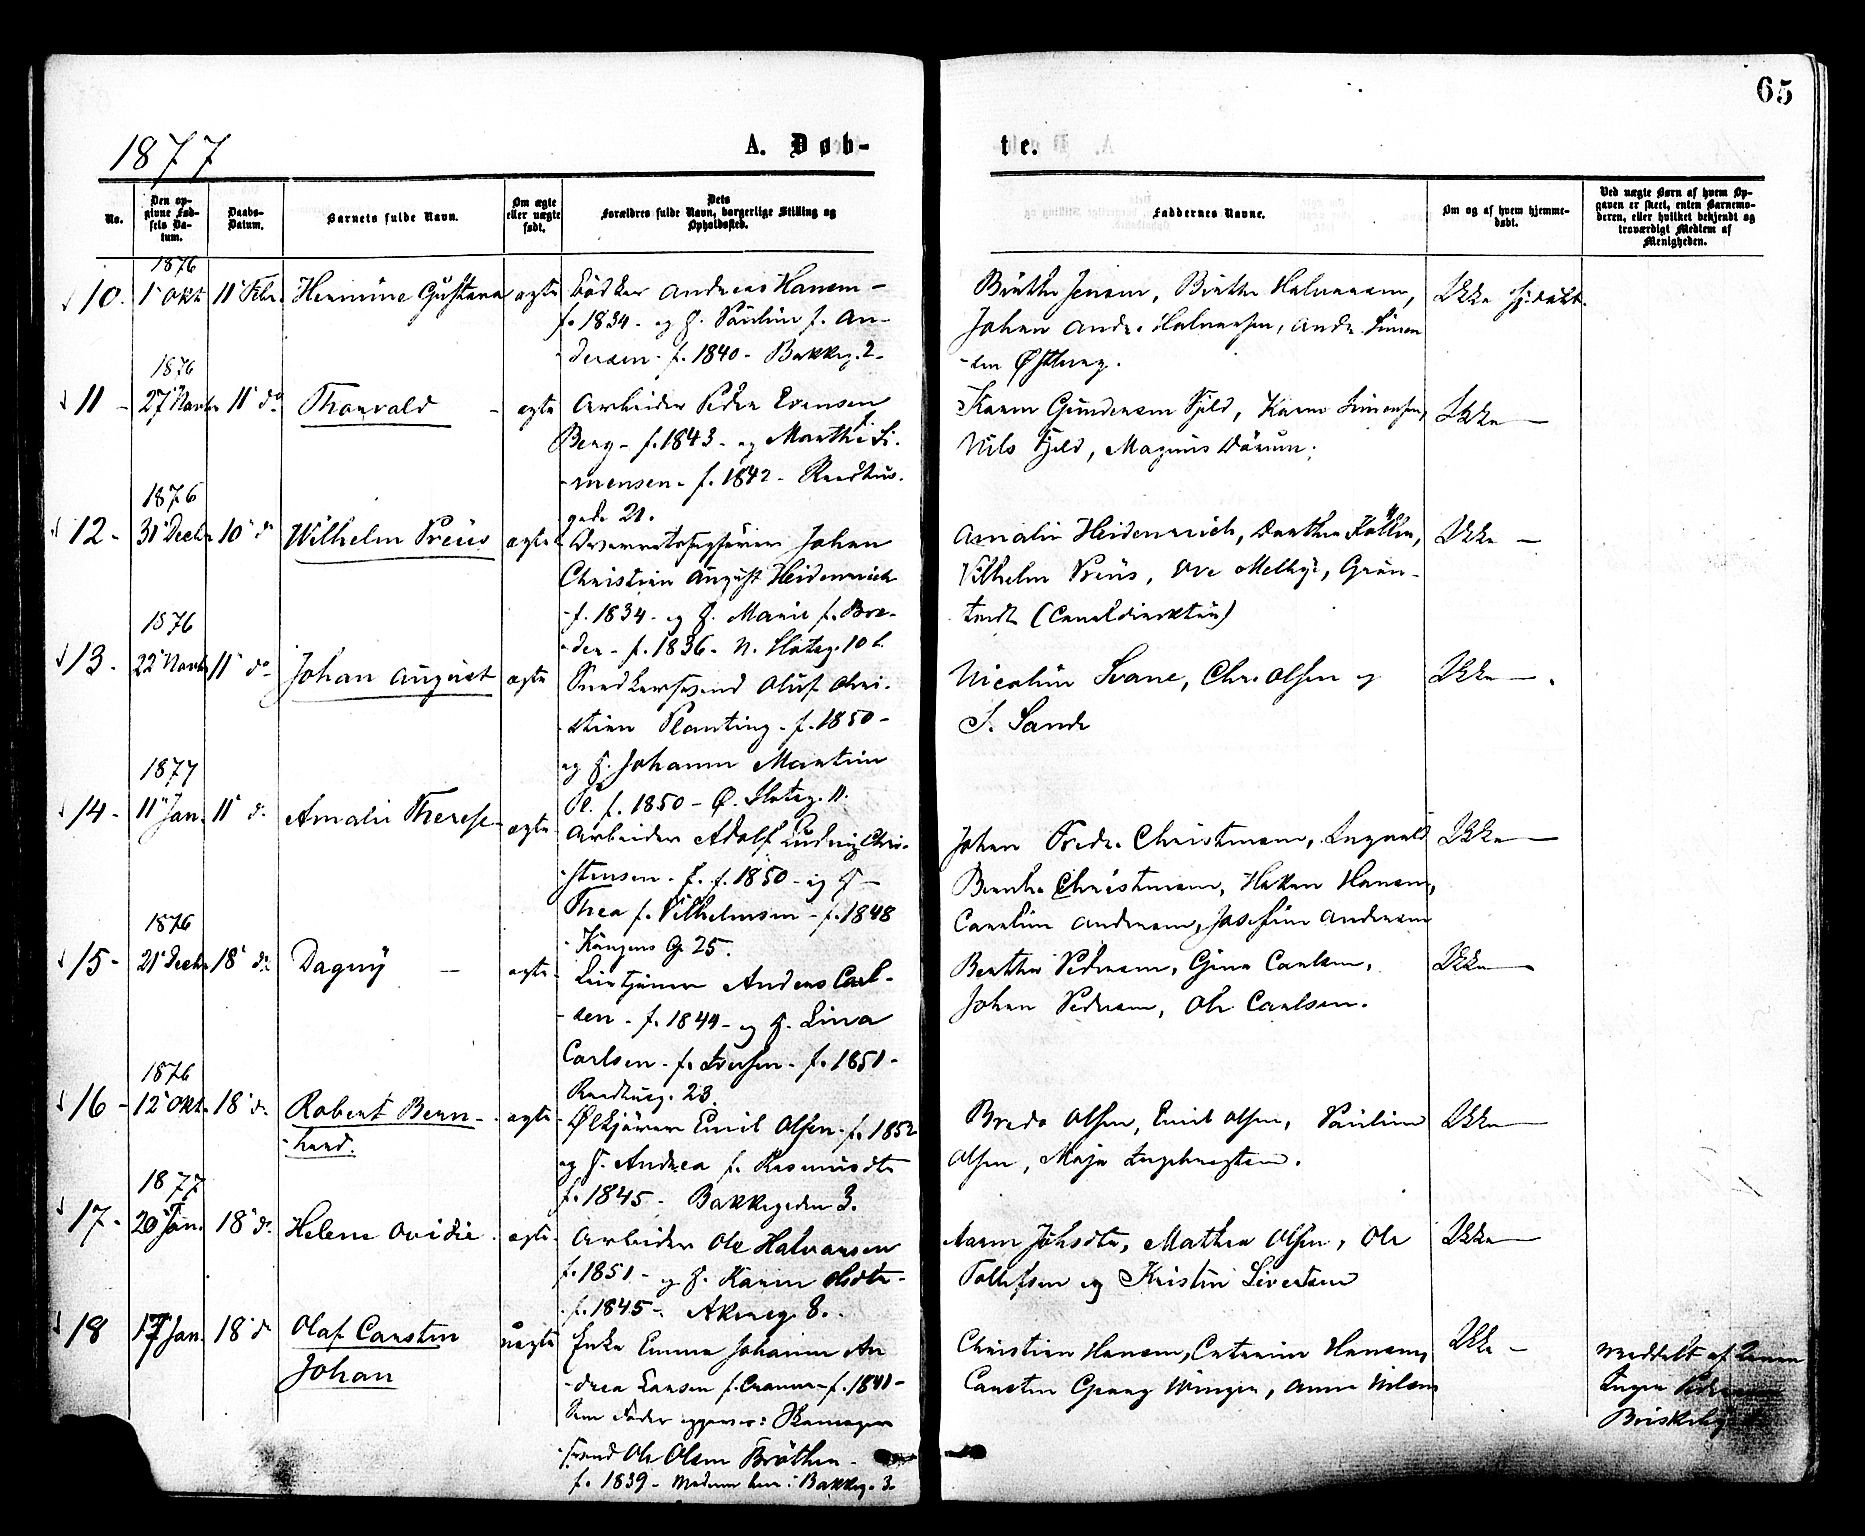 65
1877
A. Døb-
te.
No.
Den op-
givne Fød-
sels Da-
tum.
Daabs-
Datum.
Barnets fulde Navn.
Om ægte
eller uægte
født.
Dets
Forældres fulde Navn, borgerlige Stilling og
Opholdssted.
Faddernes Navne.
Om og af hvem hjemme-
døbt.
Ved uægte Børn af hvem Op-
gaven er skeet, enten Barnemo-
deren, eller hvilket bekjendt og
troværdigt Medlem af
Menigheden.
1876
10. 1' Okt 11' Febr. Hermine Gustava ægte Bødker Andreas Hansen -
f. 1834 - og H. Pauline f. An-
dersen - f. 1840 - Bakkeg. 2 -
Birthe Jensen, Birthe Halvorsen,
Johan Andr. Halvorsen, Andr. Simen
-sen Østberg.
Ikke hjdøbt.
1876
11 - 27' Novbr 11' do Thorvald - ægte Arbeider Peder Evensen
Berg - f. 1843 - og Marthe Si-
mensen - f. 1842 - Raadhus-
gade 21.
Karen Gundersen Fjeld, Karen Simensen,
Nils Fjeld, Magnus
Ikke -
1876
12 - 31' Decbr 10' do Wilhelm Preus ægte Johan
Christian August Heidenreich
- f. 1834 - og H. Marie f. Bre-
der - f. 1836 - N. Slotsg. 10 b
Amalie Heidenreich, Dorthea
Vilhelm Preus, Ove Grøn-
(Canaldirektør)
Ikke -
1876
13 - 22' Novbr 11' do Johan August ægte Snedkersvend Oluf Chri-
stian Planting - f. 1850 -
og H. Johanne Martine
Pl. f. 1850 - Ø. Slotsg. 11.
Nicoline Svane, Chr. Olsen og
S. Sande
Ikke -
1877
14 - 11' Jan. 11' do Amalie Therese ægte Arbeider Adolf Ludvig Chri-
stensen - f. 1850 - og H -
Thea f. Vilhelmsen - f. 1848
Kongens G. 25.
Johan Fredr. Christensen, Ingvald
Bernh. Christensen, Hakon Hansen,
Caroline Andersen, Josefine Andersen
Ikke -
1876
15 - 21' Decbr 18' do Dagny - ægte Anders Carl-
sen - f. 1844 - og H. Lina
Carlsen - f. Iversen - f. 1851 -
Raadhusg. 23.
Berthe Pedersen, Gina Carlsen,
Johan Pedersen, Ole Carlsen.
Ikke -
1876
16 - 12' Okt. 18' do Robert Bern-
hard. ægte Ølkjører Emil Olsen - f. 1852
og H. Andrea f. Rasmusdtr
f. 1845 - Bakkegaden 3.
Breda Olsen, Emil Olsen, Pauline
Olsen, Maja Ingebregtsen.
Ikke -
1877
17 - 20' Jan. 18' do Helene Ovidie - ægte Arbeider Ole Halvorsen
f. 1851 - og H. Karen Olsdtr -
f. 1845 - Akersg. 8.
Karen Johsdtr, Mathea Olsen, Ole
Tollefsen og Kristine Sivertsen
Ikke -
18 Jan. 18' do Olaf Carsten
Johan uægte Enke Emma Johanne An
-drea Larsen f. Cramer - f. 1841 -
Som Fader opgives: Skomager
svend Ole Olsen Bråthen -
f. 1839 - Moderen her: Bakkeg. 3.
Christian Hansen, Catrine Hansen,
Carsten Georg Winger, Anne Nilsen
Ikke -
Meddelt af
Inger Pedersen